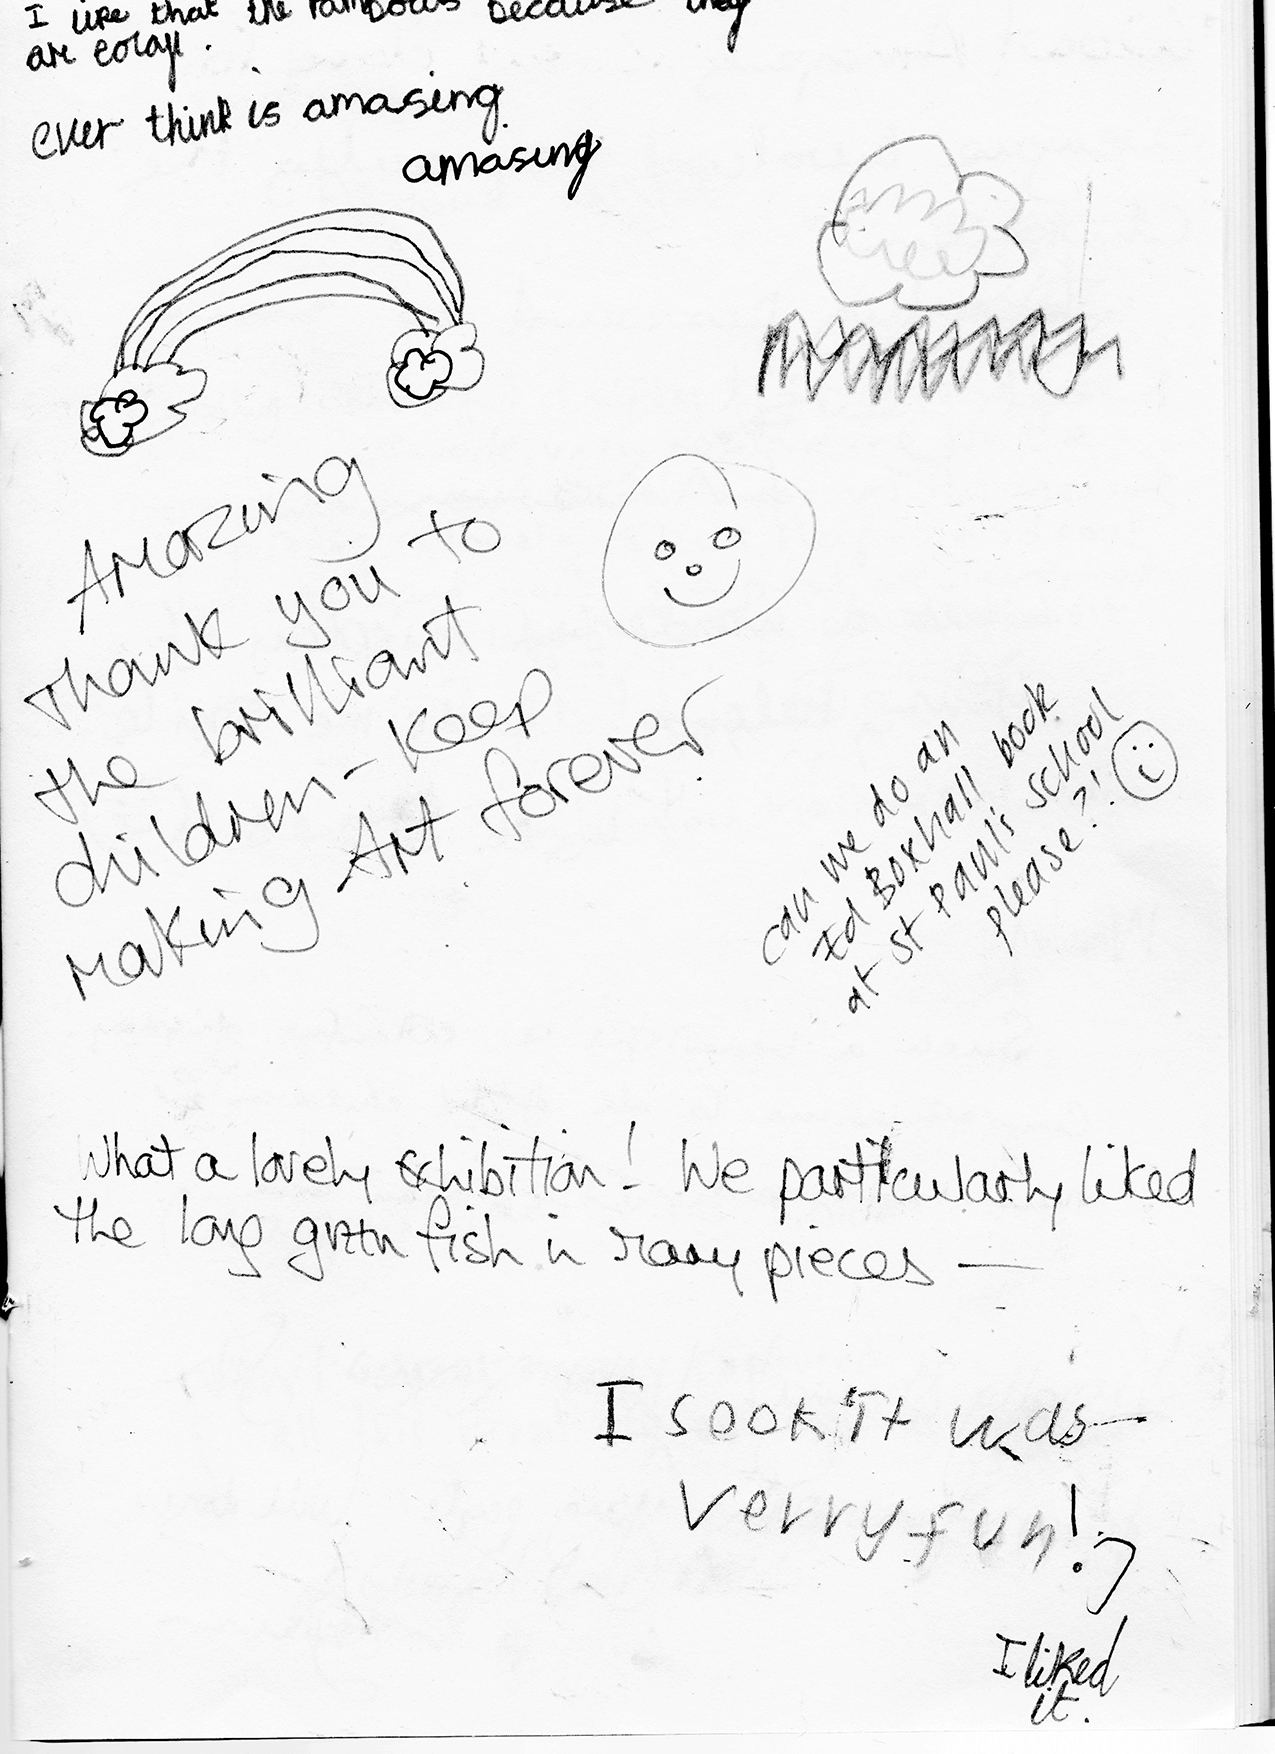 I like that the rainbows because they
are
ever think is amasing
amasing
Amazing
Thank you to
the brilliant
children - Keep
making Art forever
can we do an
Ed Boxhall book
at St Paul's school
please?!
What a lovely exhibition! We particularly liked
the long green fish in many pieces —
I sook it was
verry fun!
I liked
it.